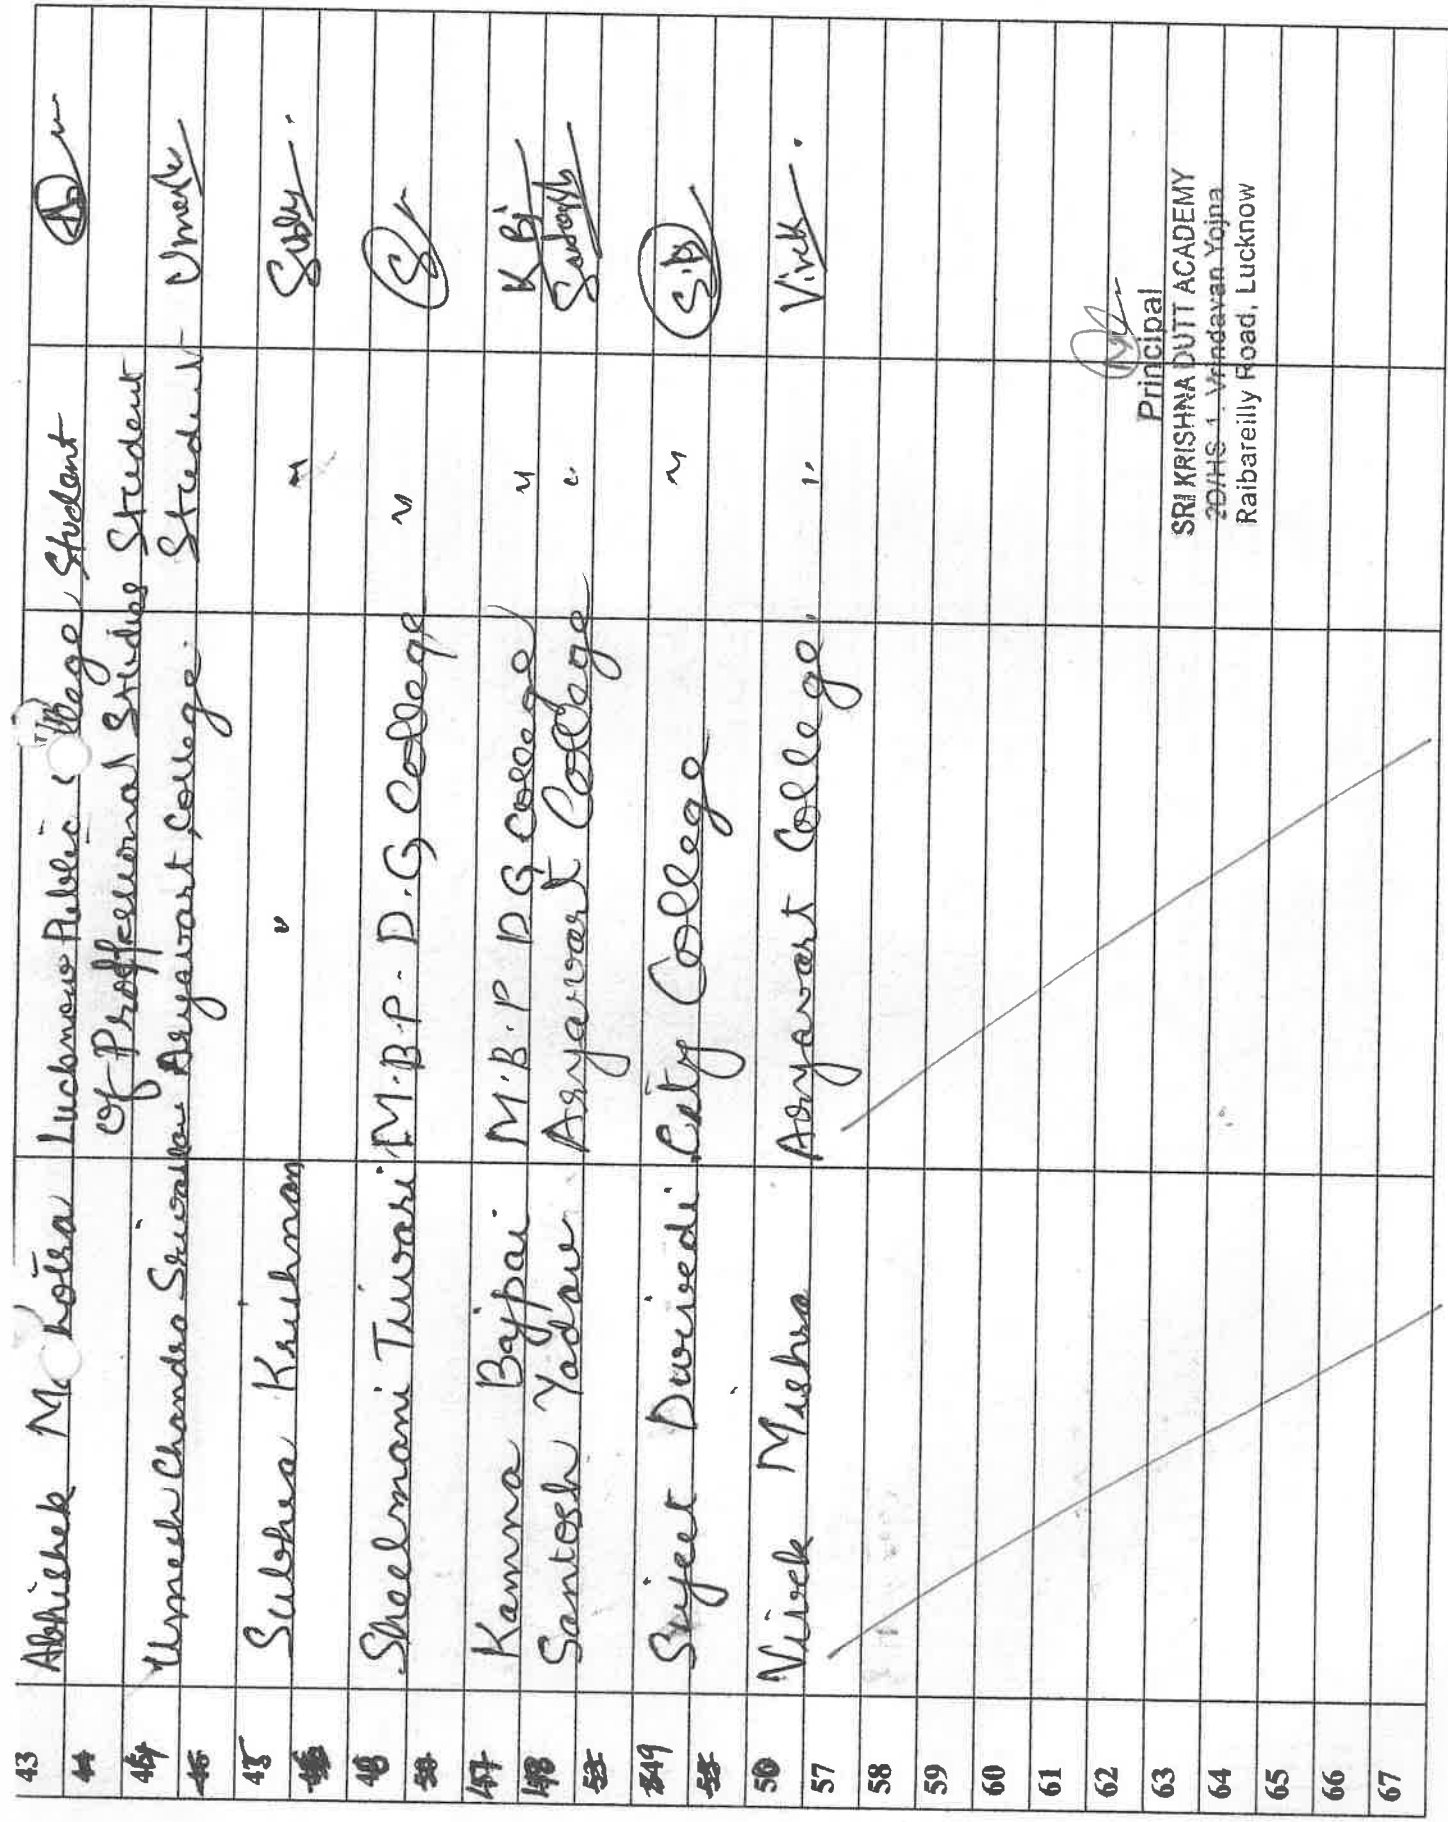 43 Abhishek M hotra Lucknow Public llege Student
of Proffessional Studies Student
44 Umesh Chandra Aryavart College. Student Umesh
45 Subhra Krishnan " "
Sheelmani Tiwari M.B.P. D.G College " S
47 Kamna Bajpai M.B.P D G College " K Bj
48 Santosh Yadav Aryavart College " Santosh
49 Sujeet Dwivedi City College " S.D
50 Vivek Mishra Aryavart College. " Vivek.
57
58
59
60
61
62
63
64
65
66
67
Principal
SRI KRISHNA DUTT ACADEMY
2D/HS 1, Vrindavan Yojna
Raibareilly Road, Lucknow